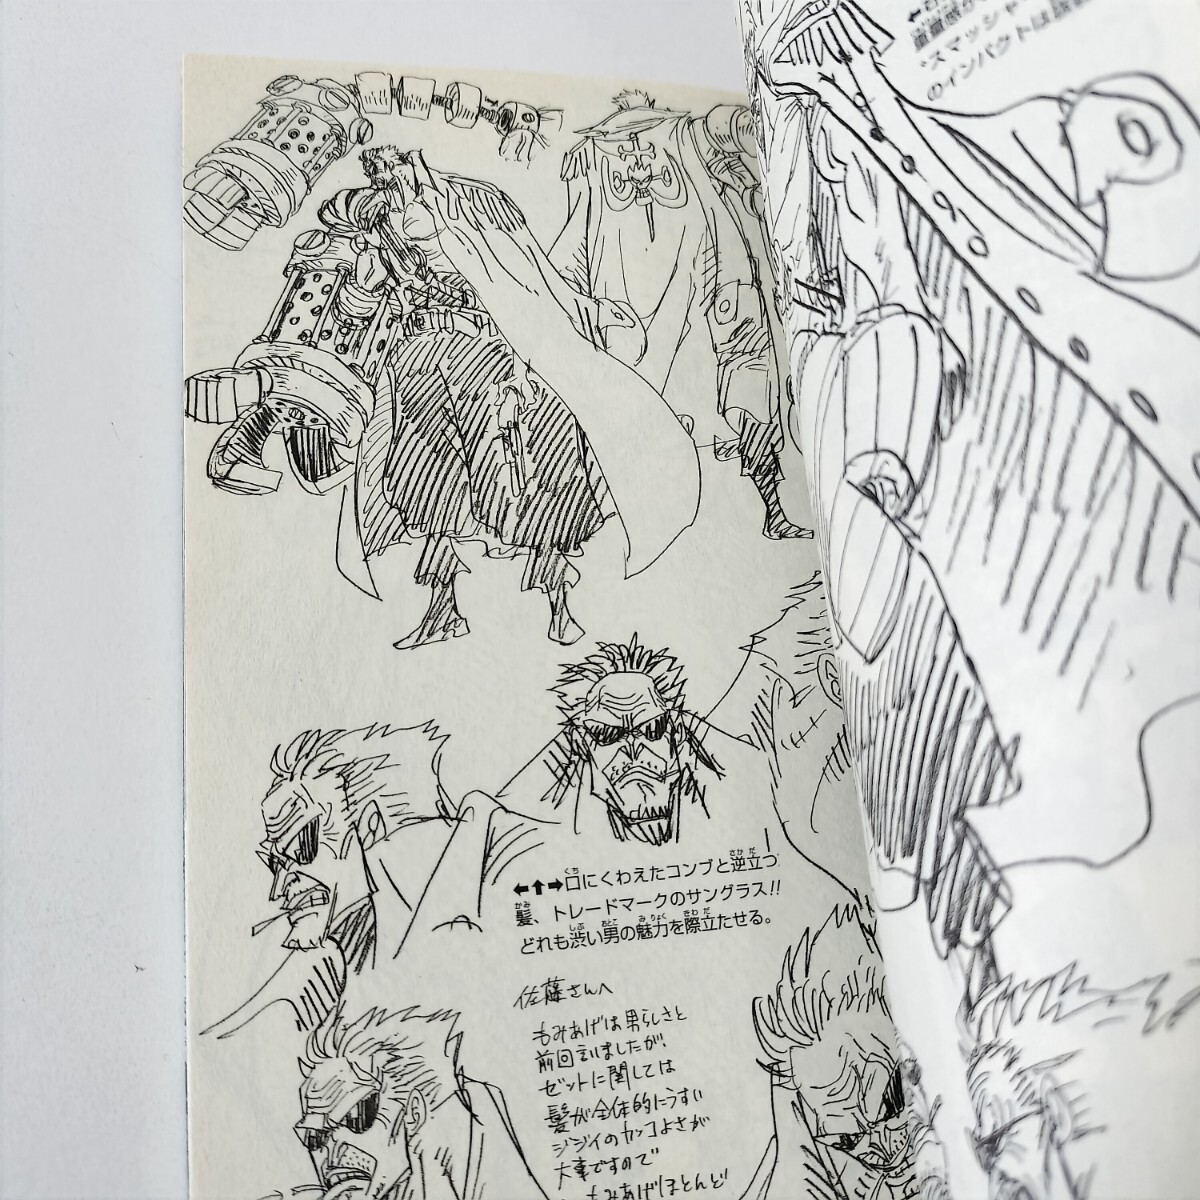 重量感が
"スマッシャ
のインパクトは
←↑→口にくわえたコンブと逆立つ
髪、トレードマークのサングラス!!
どれも渋い男の魅力を際立たせる。
佐藤さんへ
もみあげは男らしさと
前回言いましたが
ゼットに関しては
髪が全体的にうすい
ジジイのカッコよさが
大事ですので
もみあげほとんど